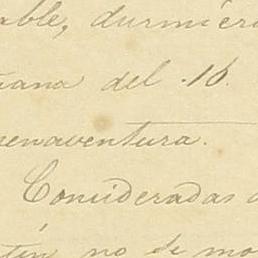 able, durmier
ñana del 16.
uenaventura.
Consideradas
tín no se mo